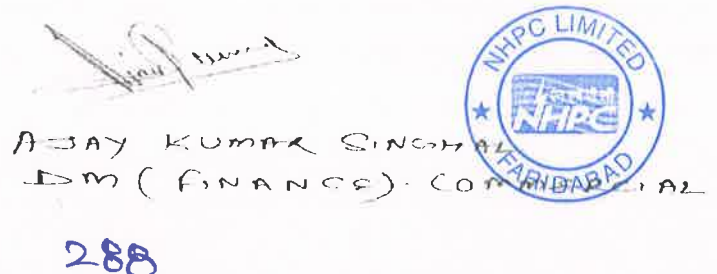 NHPC LIMITED
एनएचपीसी
NHPC
FARIDABAD
AJAY KUMAR SINGHAL
DM (FINANCE). COMMERCIAL
288